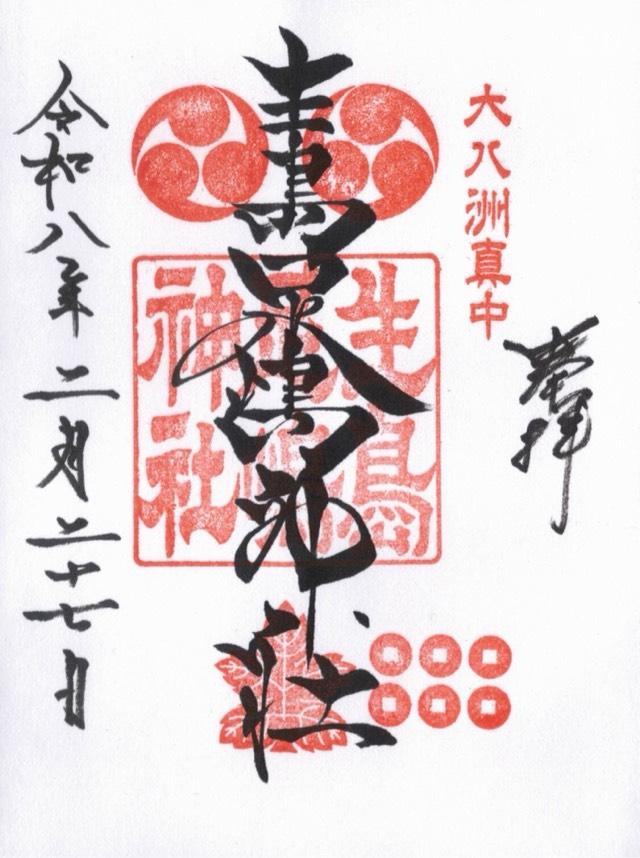 奉拝
大八洲真中
生島足島神社
生島
足島
神社
令和八年二月二十七日